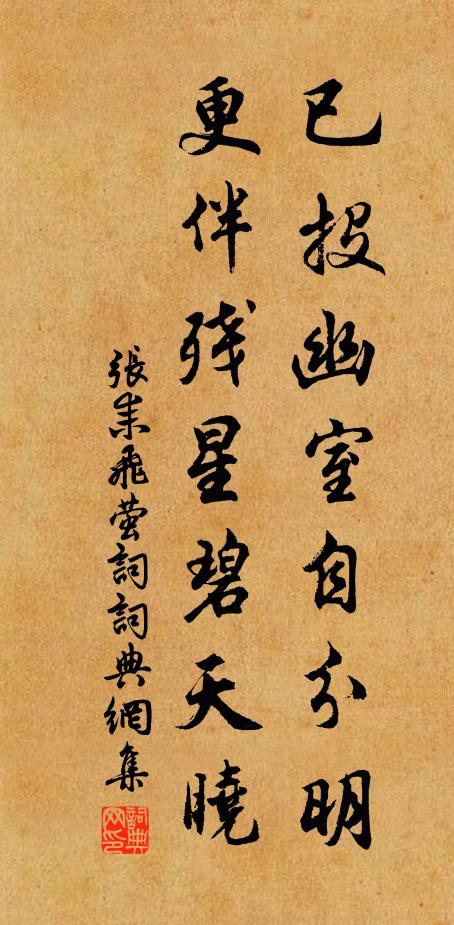 已投幽室自分明
更伴残星碧天曉
張耒飛萤詞詞典網集
詞典網印